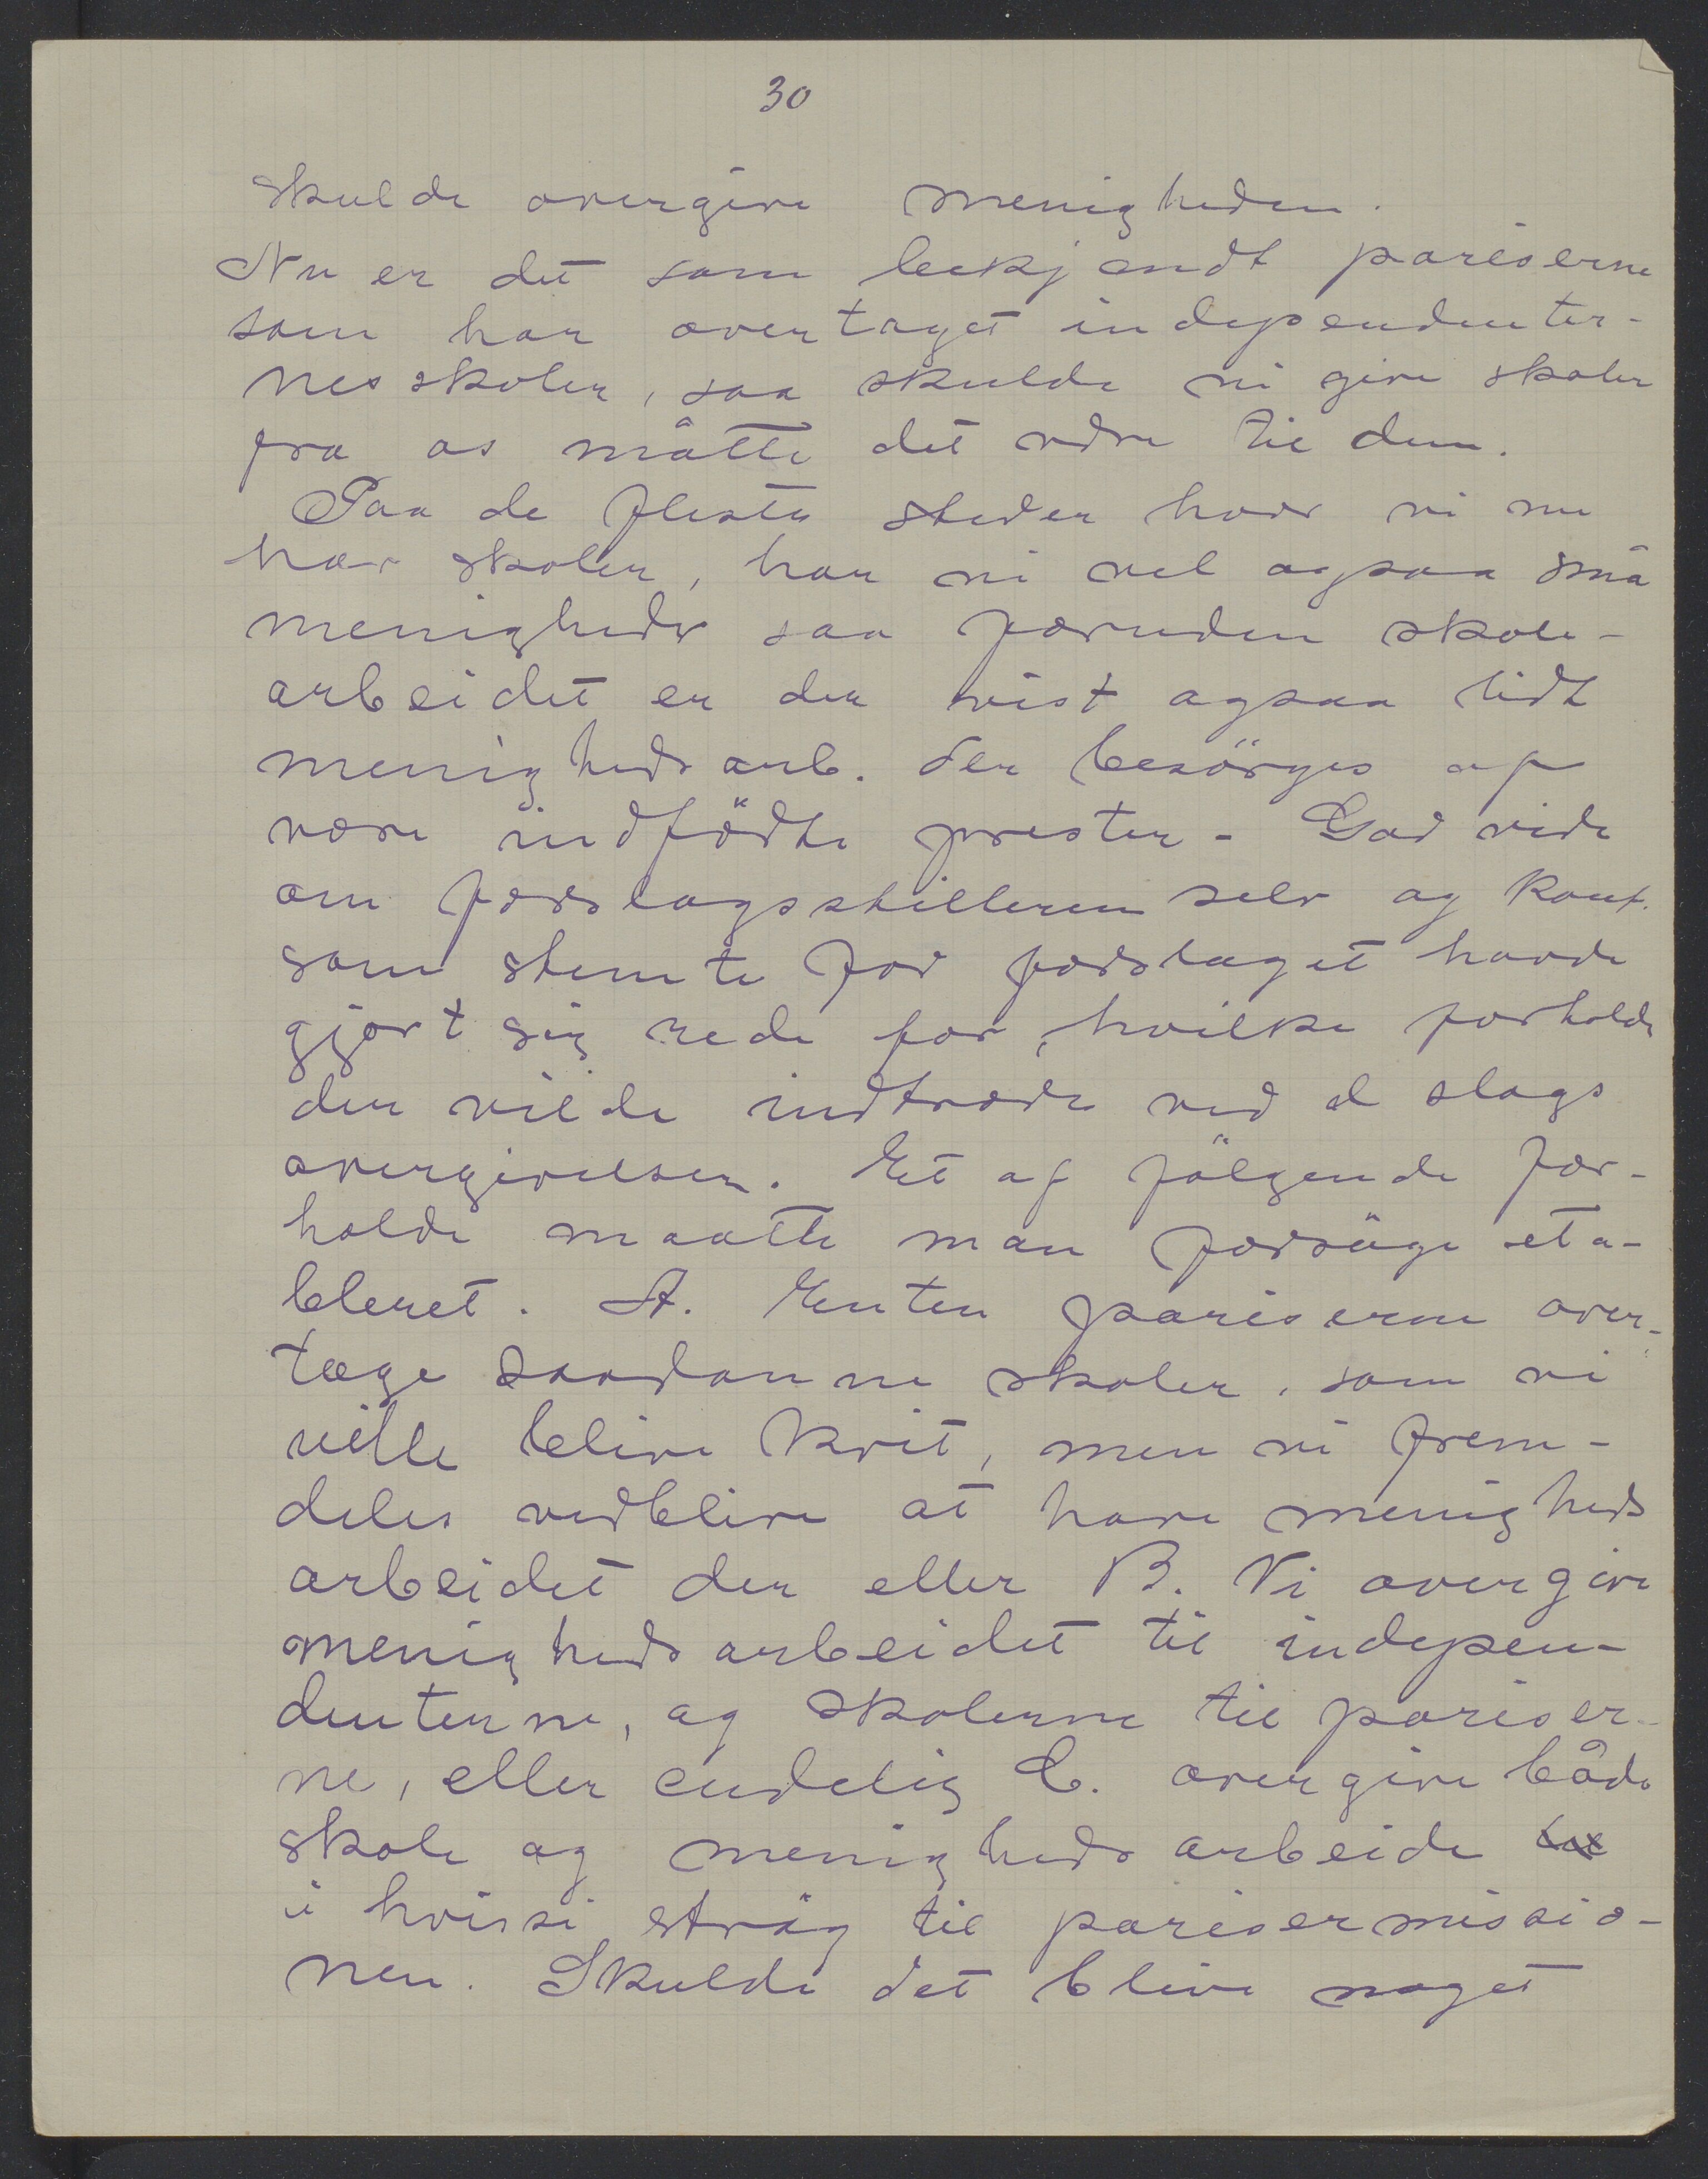 30
skulde overgive menigheden.
Nu er det som bekjendt pariserne
som har overtaget independenter-
nes skoler, saa skulde vi give skoler
fra os måtte det være til dem.
Paa de fleste steder hvor vi nu
har skoler, har vi vel ogsaa små
menigheder saa foruden skole-
arbeidet er der vist ogsaa lidt
menighedsarb. der besörges af
vore indfödte prester - Gad vide
om forslagsstilleren selv og Konf.
som stemte for forslaget havde
gjort sig rede for, hvilke forholde
der vilde indtræde ved d slags
overgivelser. Et af fölgende for-
holde maatte man forsöge eta-
bleret. A. Enten pariserne over-
tage saadanne skoler, som vi
ville blive kvit, men vi frem-
deles vedblive at have menigheds
arbeidet der eller B. Vi overgive
menighedsarbeidet til indepen-
denterne, og skolerne til pariser-
ne, eller endelig C. overgive både
skole og menigheds arbeide
i hvisse strög til parisermissio-
nen. Skulde det blive noget